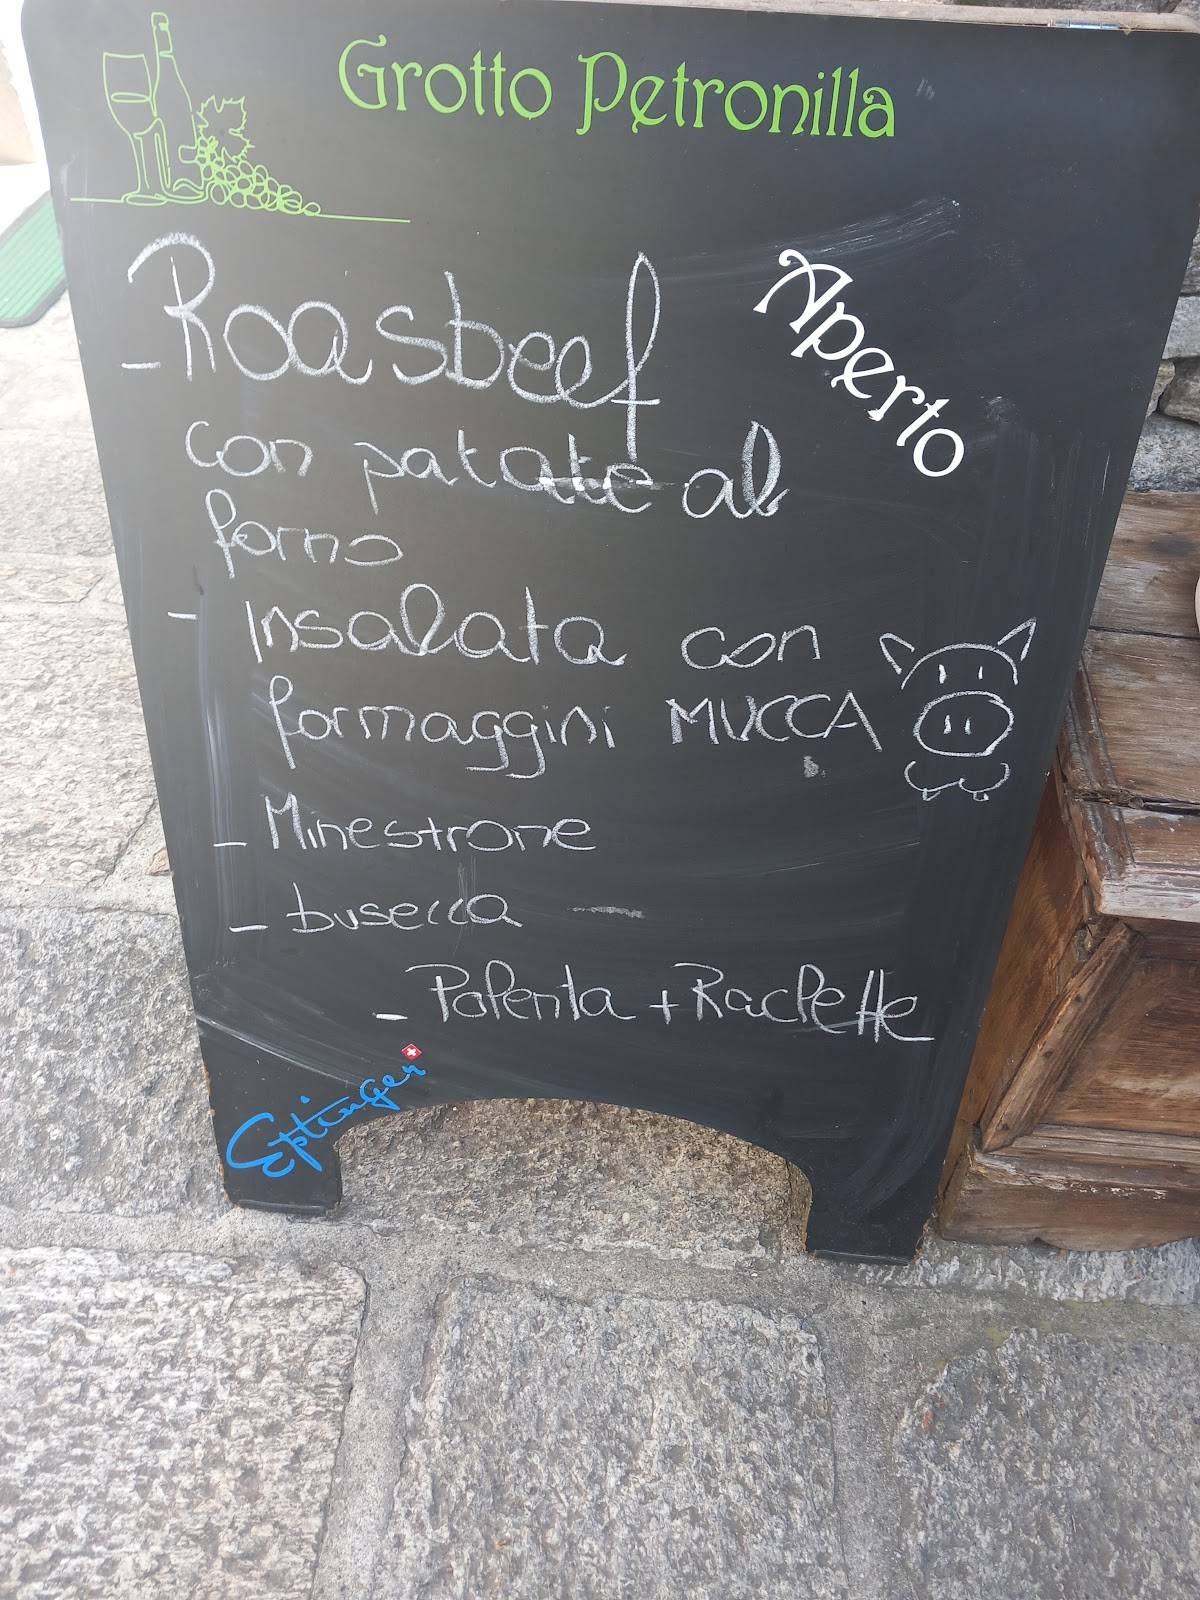 Grotto Petronilla
Aperto
- Roasbeef
con patate al
forno
- Insalata con
formaggini MUCCA
- Minestrone
- busecca
- Polenta + Raclette
Eptinger